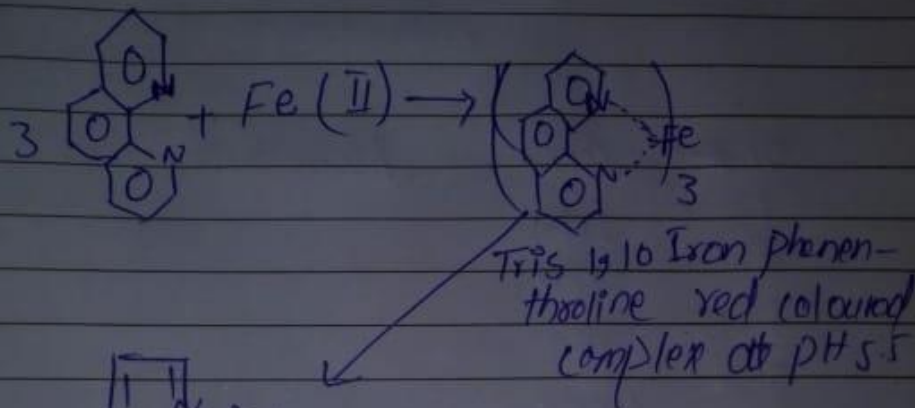 3 N N + Fe (II) → ( N N Fe ) 3
Tris 1,10 Iron phenen-
throline red coloured
complex at pH 5.5